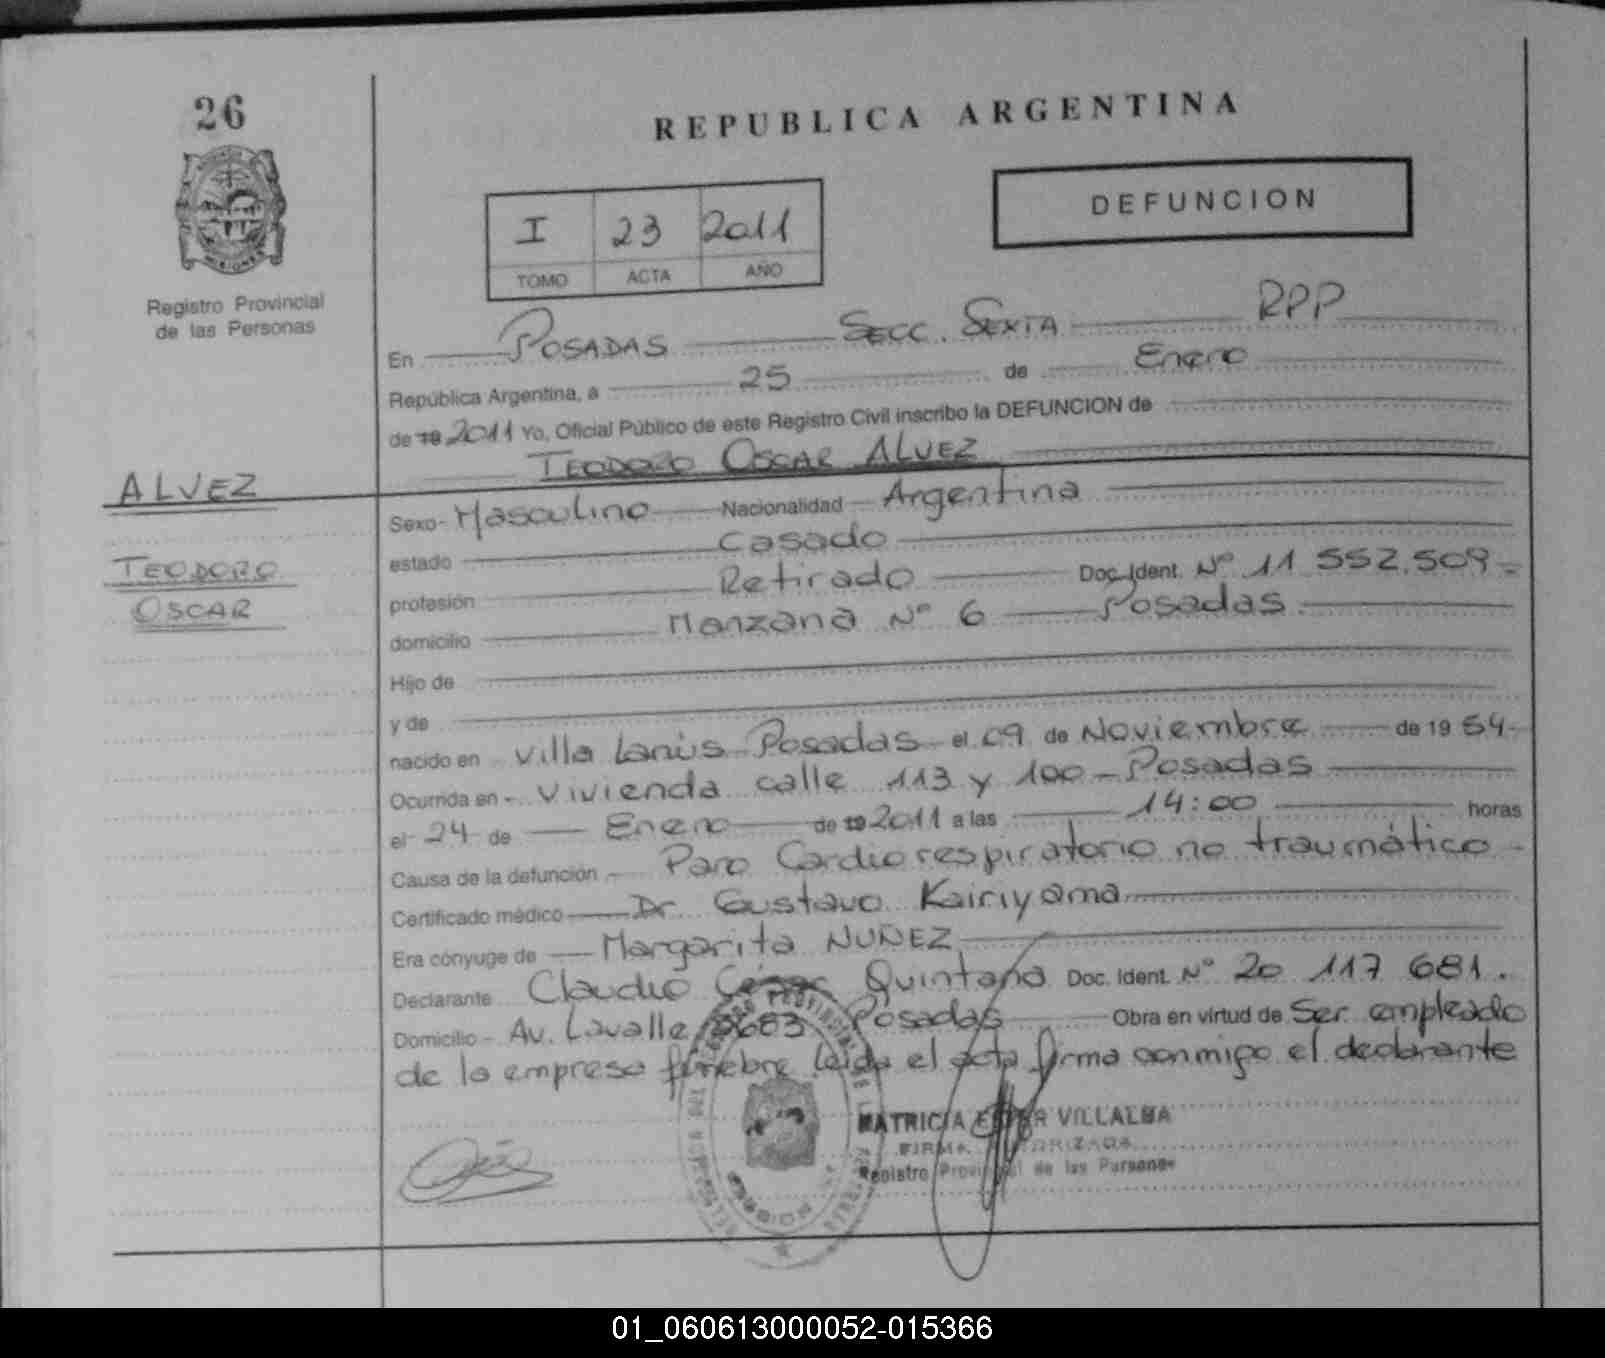 26
REPUBLICA ARGENTINA
DEFUNCION
I 23 2011
TOMO ACTA AÑO
MISIONES
Registro Provincial
de las Personas
En POSADAS SECC. SEXTA RPP
República Argentina, a 25 de Enero
de 19 2011 Yo, Oficial Público de este Registro Civil inscribo la DEFUNCION de
TEODORO OSCAR ALVEZ
ALVEZ
TEODORO
OSCAR
Sexo Masculino Nacionalidad Argentina
estado casado
profesión Retirado Doc. Ident. Nº 11 552.509
domicilio Manzana Nº 6 Posadas.
Hijo de
y de
nacido en Villa Lanús Posadas el 09 de Noviembre de 19 54
Ocurrida en Vivienda calle 113 y 100 - Posadas
el 24 de Enero de 19 2011 a las 14:00 horas
Causa de la defunción Paro Cardiorespiratorio no traumático
Certificado médico Dr. Gustavo Kairiyama
Era cónyuge de Margarita NUÑEZ
Declarante Claudio César Quintana Doc. Ident. Nº 20 117 681.
Domicilio Av. Lavalle Posadas Obra en virtud de Ser empleado
de la empresa fúnebre leída el acta firma conmigo el declarante
VILLALBA
FIRMA AUTORIZADA
Registro Provincial de las Personas
01_060613000052-015366